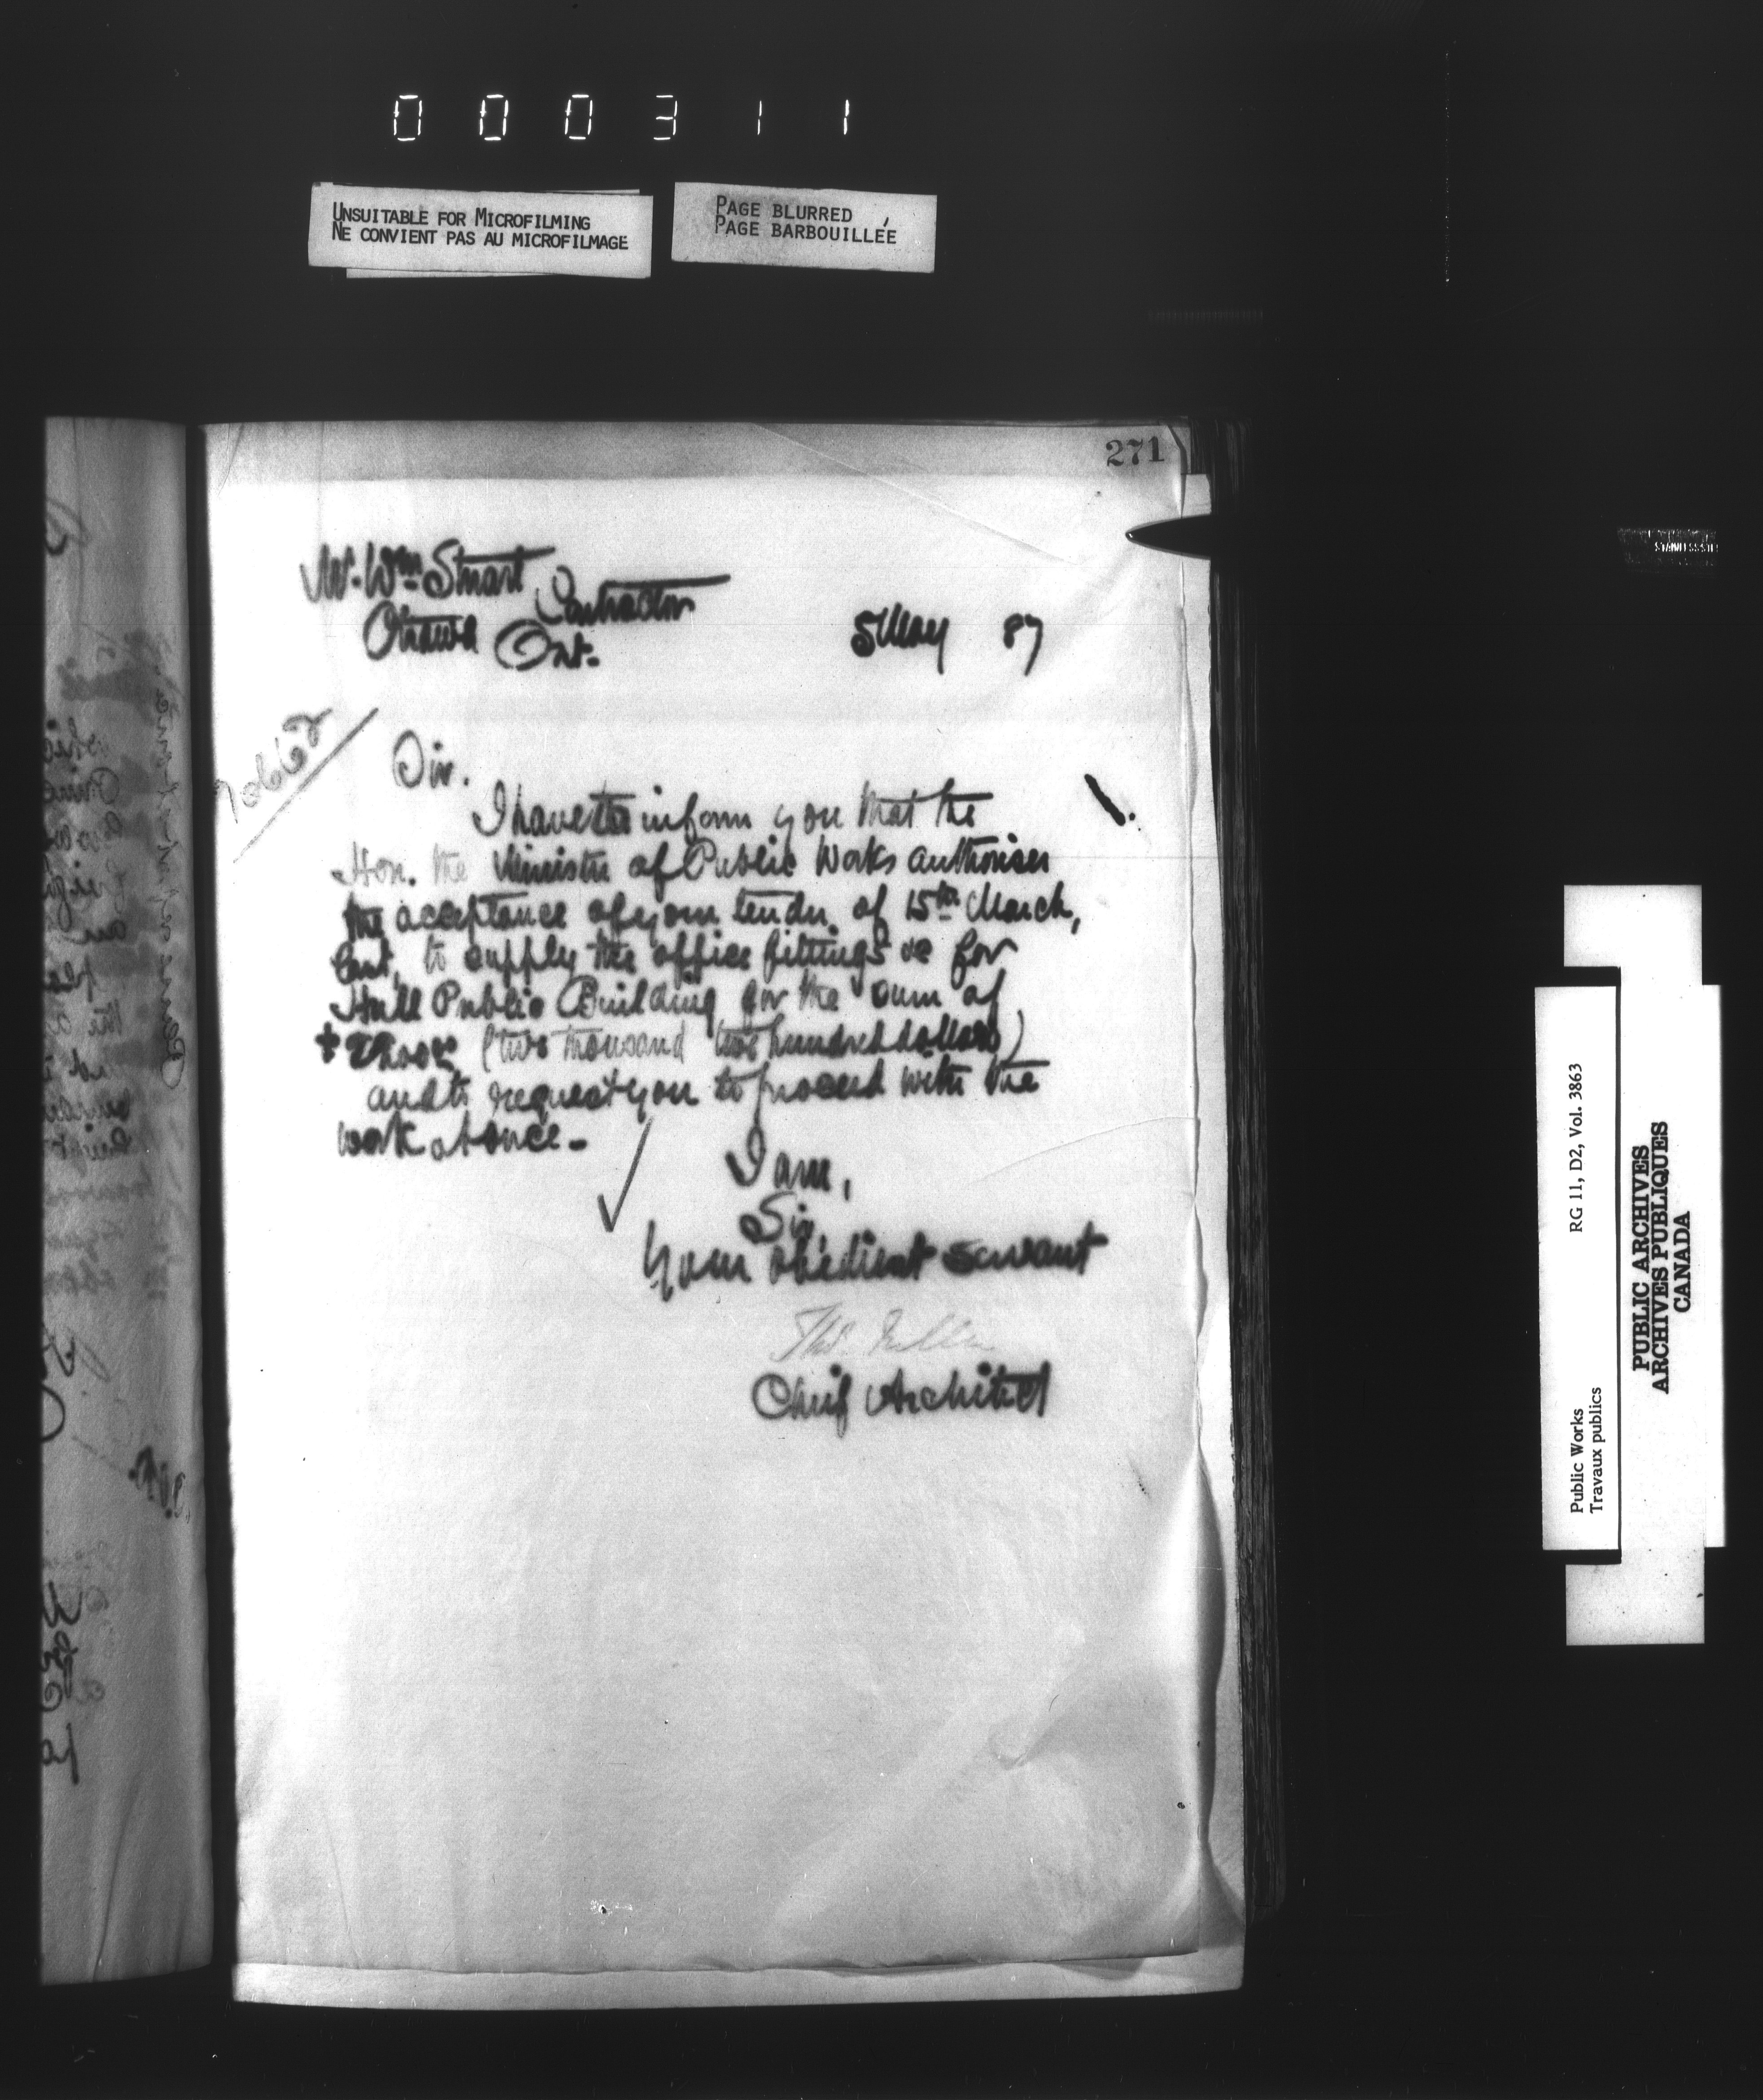 000311
UNSUITABLE FOR MICROFILMING
NE CONVIENT PAS AU MICROFILMAGE
PAGE BLURRED
PAGE BARBOUILLÉE
271
Mr. Wm Stuart
Contractor
Ottawa Ont.
5 May 87
70662
Sir.
I have to inform you that the
Hon. the Minister of Public Works authorises
the acceptance of your tender of 15th March,
last, to supply the office fittings &c for
Hull Public Building for the sum of
(two thousand two hundred dollars)
and to request you to proceed with the
work at once.
I am,
Sir
Your obedient servant
Thos.
Chief Architect
STAINLESS
RG 11, D2, Vol. 3863
Public Works
Travaux publics
PUBLIC ARCHIVES
ARCHIVES PUBLIQUES
CANADA